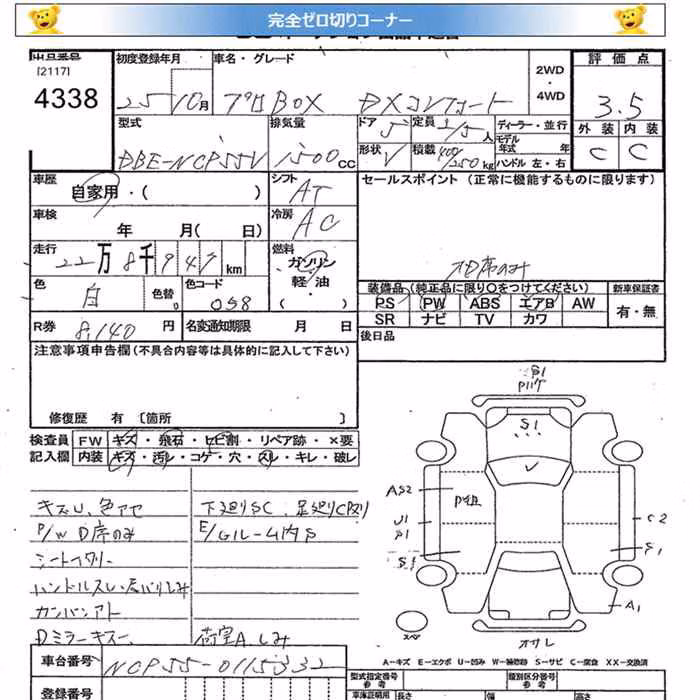 完全ゼロ切りコーナー
出品番号
[2117]
4338
初度登録年月
25 10月
車名・グレード
プロBOX DXコンフォート
2WD
・
4WD
評価点
3.5
外装 内装
C C
型式
DBE-NCP55V
排気量
1500cc
ドア
5
定員 2/5人
形状
V
積載 400/250kg
ディーラー・並行
モデル年式 年
ハンドル 左・右
車歴
自家用・( )
シフト
AT
セールスポイント (正常に機能するものに限ります)
車検
年 月( 日)
冷房
AC
走行
22万8千947km
燃料
ガソリン
軽油
・
( )
D席のみ
色
白
色替
色コード
058
装備品 (純正品に限り○をつけてください)
PS PW ABS エアB AW
SR ナビ TV カワ
新車保証書
有・無
R券 8,140円
名変通知期限 月 日
後日品
注意事項申告欄 (不具合内容等は具体的に記入して下さい)
修復歴 有 [箇所 ]
検査員 FW キズ・飛石・ヒビ割・リペア跡・×要
記入欄 内装 キズ・汚レ・コゲ・穴・スレ・キレ・破レ
キズU、色アセ
P/W D席のみ
ハンドルスレ
カンバンアト
Dミラーキズ
下廻りSC 足廻りC
E/Gルーム内S
荷室A しみ
S1
S1
AS2
U1
S1
C2
S1
A1
スペア
A-キズ E-エクボ U-凹み W-補修跡 S-サビ C-腐食 XX-交換済
車台番号 NCP55-0115332
登録番号
型式指定番号
参考
類別区分番号
参考
車庫証明用
長さ 幅 高さ